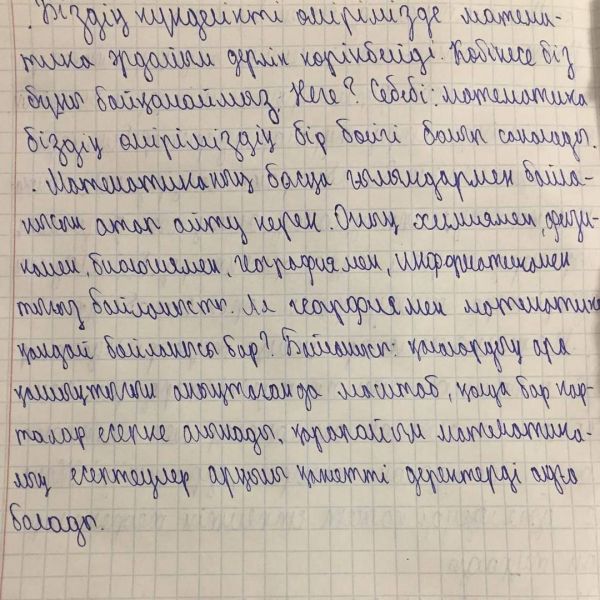 Біздің күнделікті өмірімізде матема-
тика әрдайым дерлік көрінбейді. Көбінесе біз
бұны байқамаймыз. Неге? Себебі: математика
біздің өміріміздің бір бөлігі болып саналады.
Математиканың басқа ғылымдармен байла-
нысын атап айту керек. Оның химиямен, физи-
камен, биологиямен, географиямен, информатикамен
тығыз байланысты. Ал географиямен математика
қандай байланысы бар? Байланысы: қалалардың ара
қашықтығын анықтағанда масштаб, қолда бар кар-
талар есепке алынады, қарапайым математика-
лық есептеулер арқылы қажетті деректерді алуға
болады.